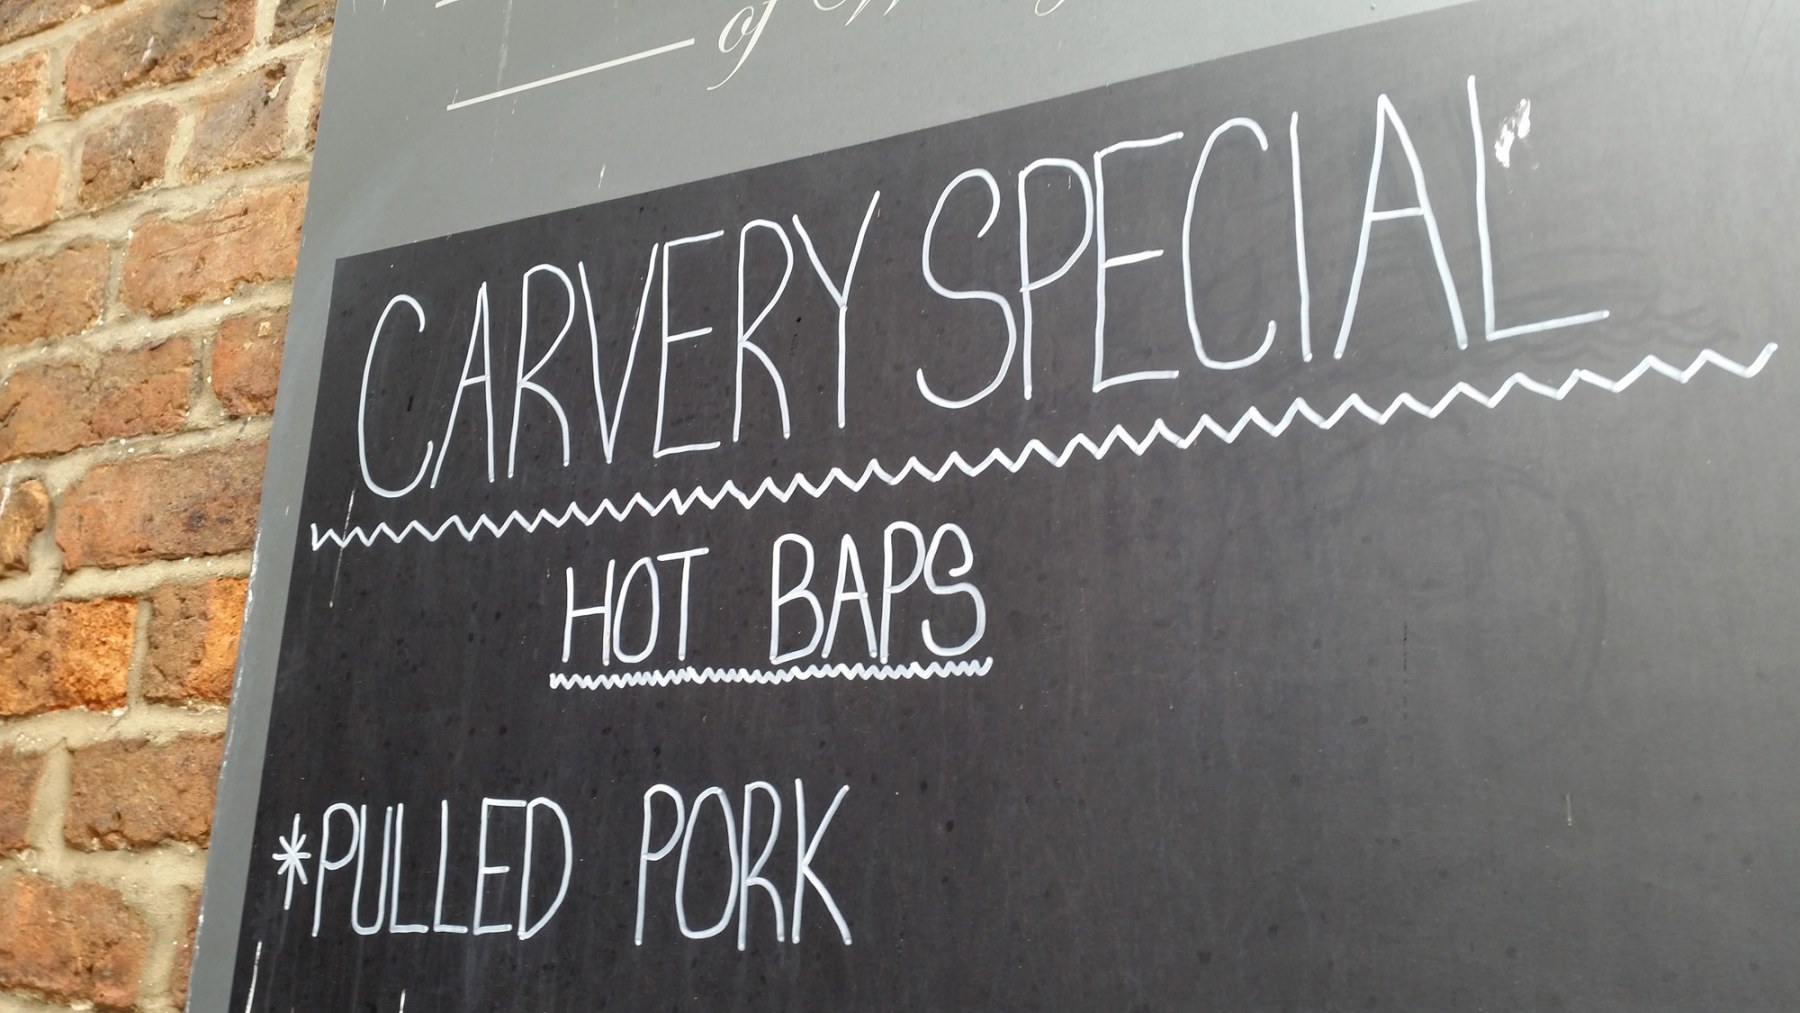 of
CARVERY SPECIAL
HOT BAPS
*PULLED PORK